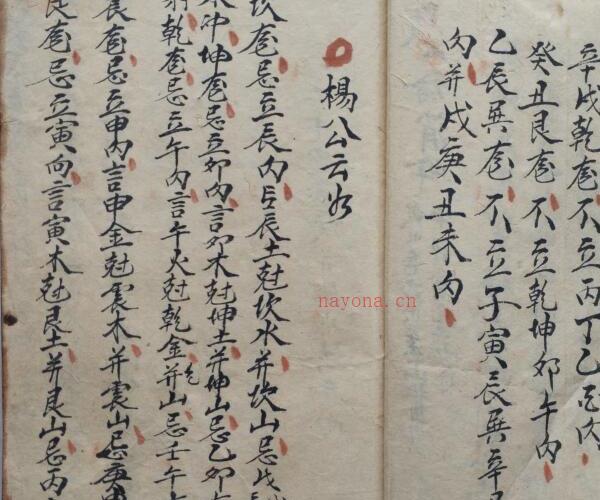 辛戌乾龍不立丙丁乙
癸丑艮龍不立乾坤卯午向
乙辰巽龍不立子寅辰巽辛
向并戌庚丑未向
楊公云
坎龍忌立辰向言辰土尅坎水并坎山忌戌
坤龍忌立卯向言卯木尅坤土并坤山忌乙卯
乾龍忌立午向言午火尅乾金并乾山忌壬午
龍忌立申向言申金尅震木并震山忌庚申
艮龍忌立寅向言寅木尅艮土并艮山忌丙
nayona.cn